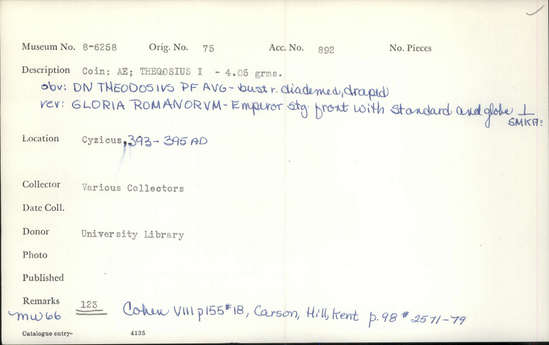 Museum No. 8-6258 Orig. No. 75 Acc. No. 892 No. Pieces
Description Coin: AE; THEODOSIUS I - 4.05 grms.
obv: DN THEODOSIVS PF AVG - bust r. diademed, draped
rev: GLORIA ROMANORVM - Emperor stg front with standard and globe ⊥
SMKA:
Location Cyzicus, 393-395 AD
Collector Various Collectors
Date Coll.
Donor University Library
Photo
Published
Remarks 123 Cohen VIII p155 #18, Carson, Hill, Kent p.98 # 2571-79
MW66
Catalogue entry- 4135